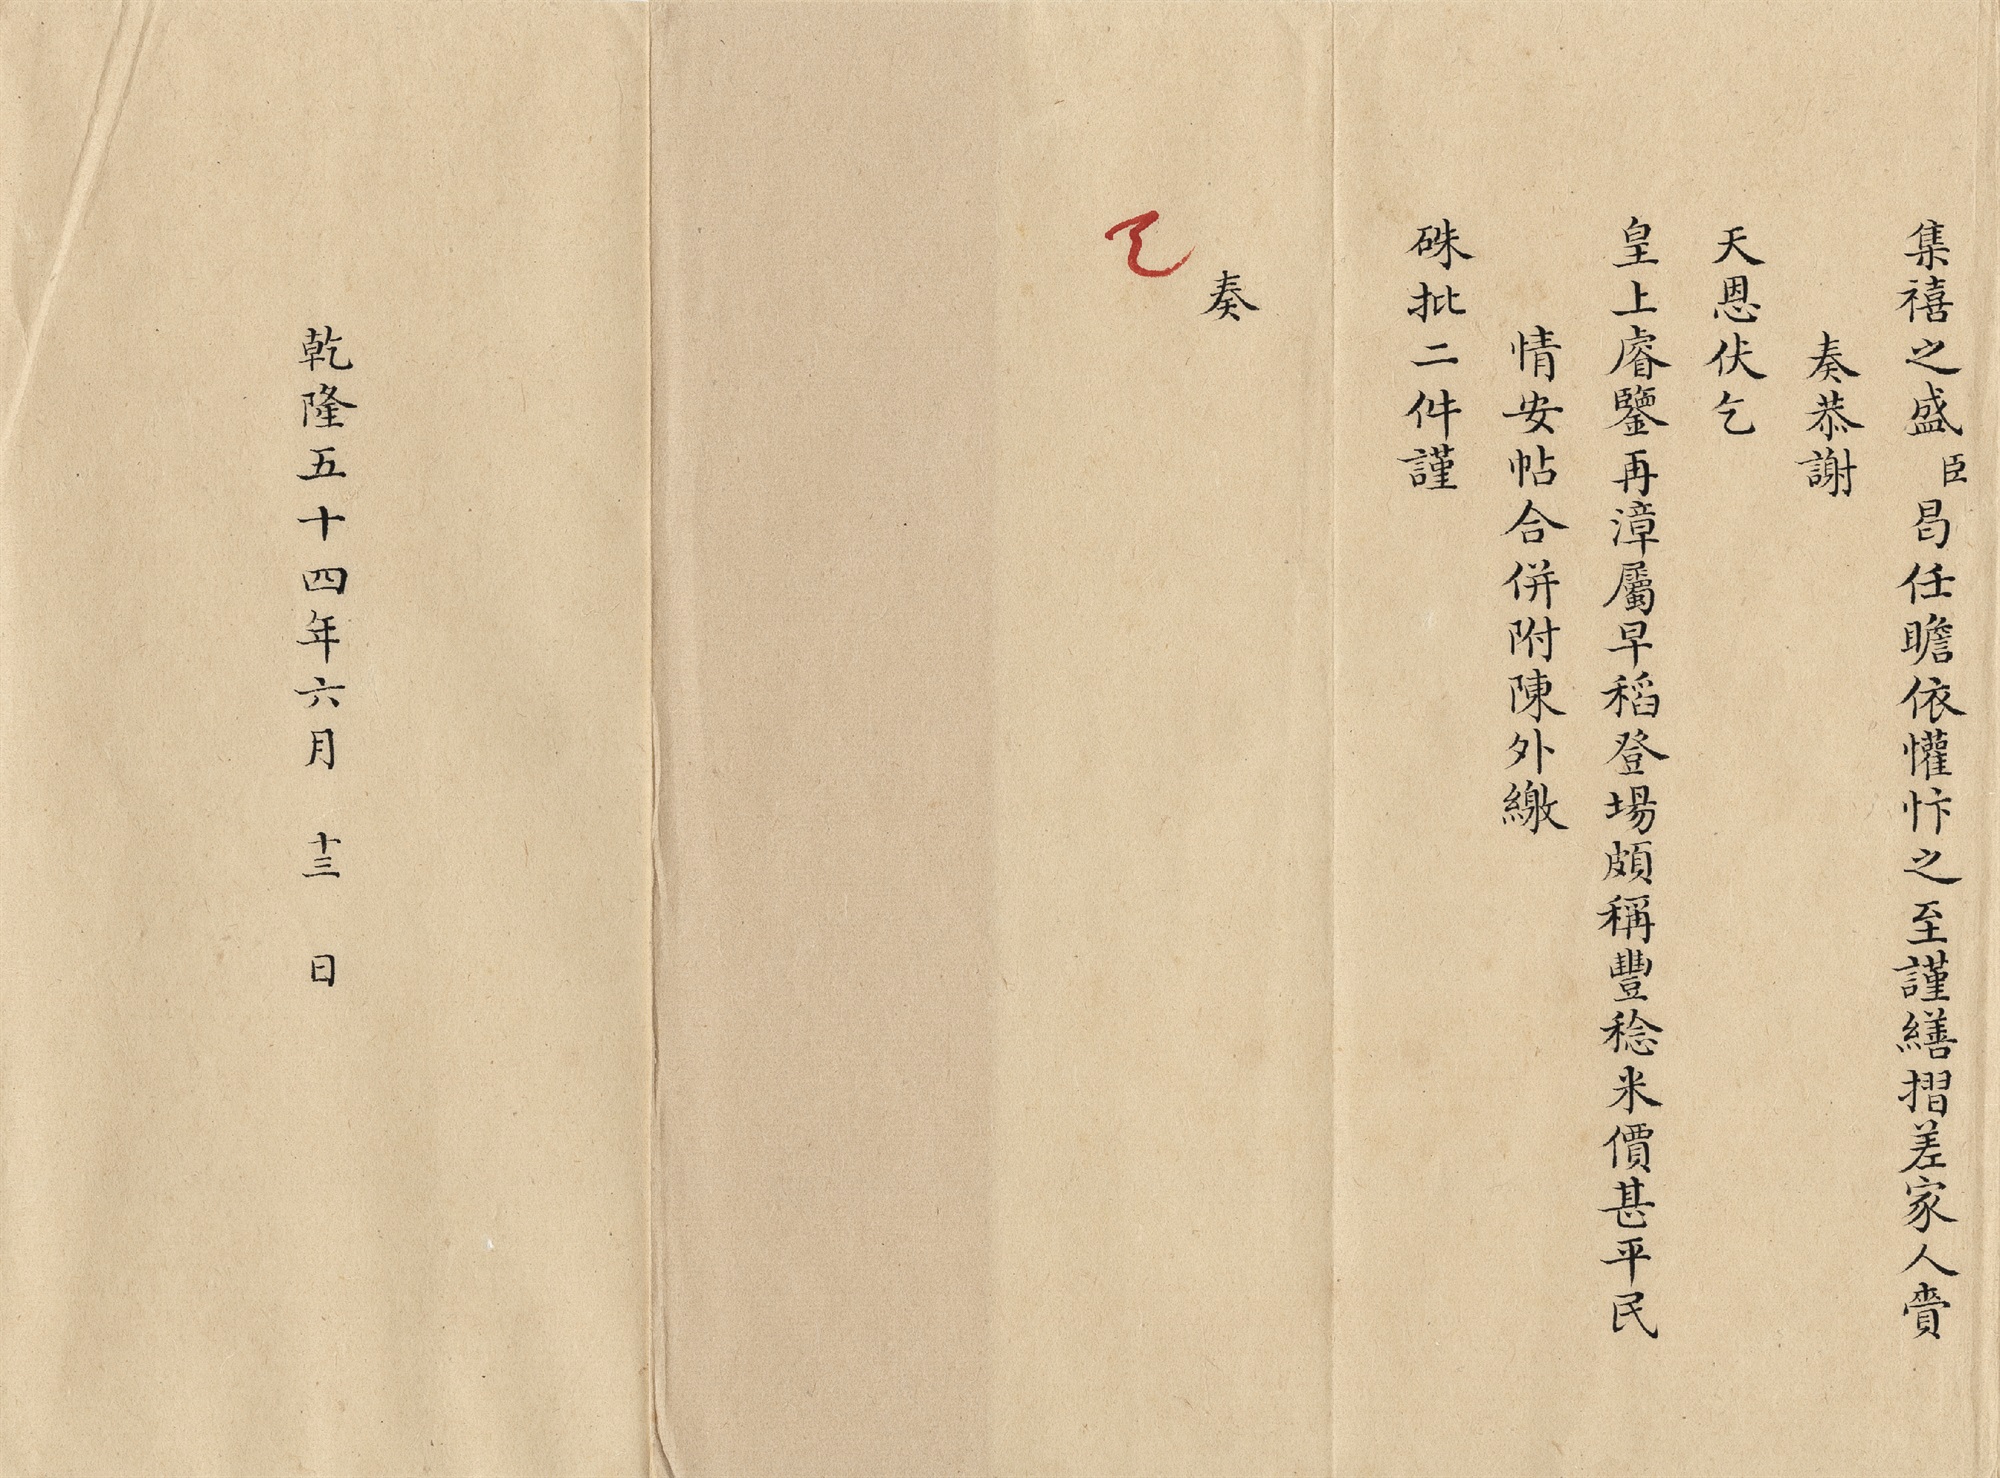 集禧之盛臣曷任瞻依懽忭之至謹繕摺差家人賫
奏恭謝
天恩伏乞
皇上睿鑒再漳屬早稻登場頗稱豐稔米價甚平民
情安帖合併附陳外繳
硃批二件謹
奏
乾隆五十四年六月 十三 日